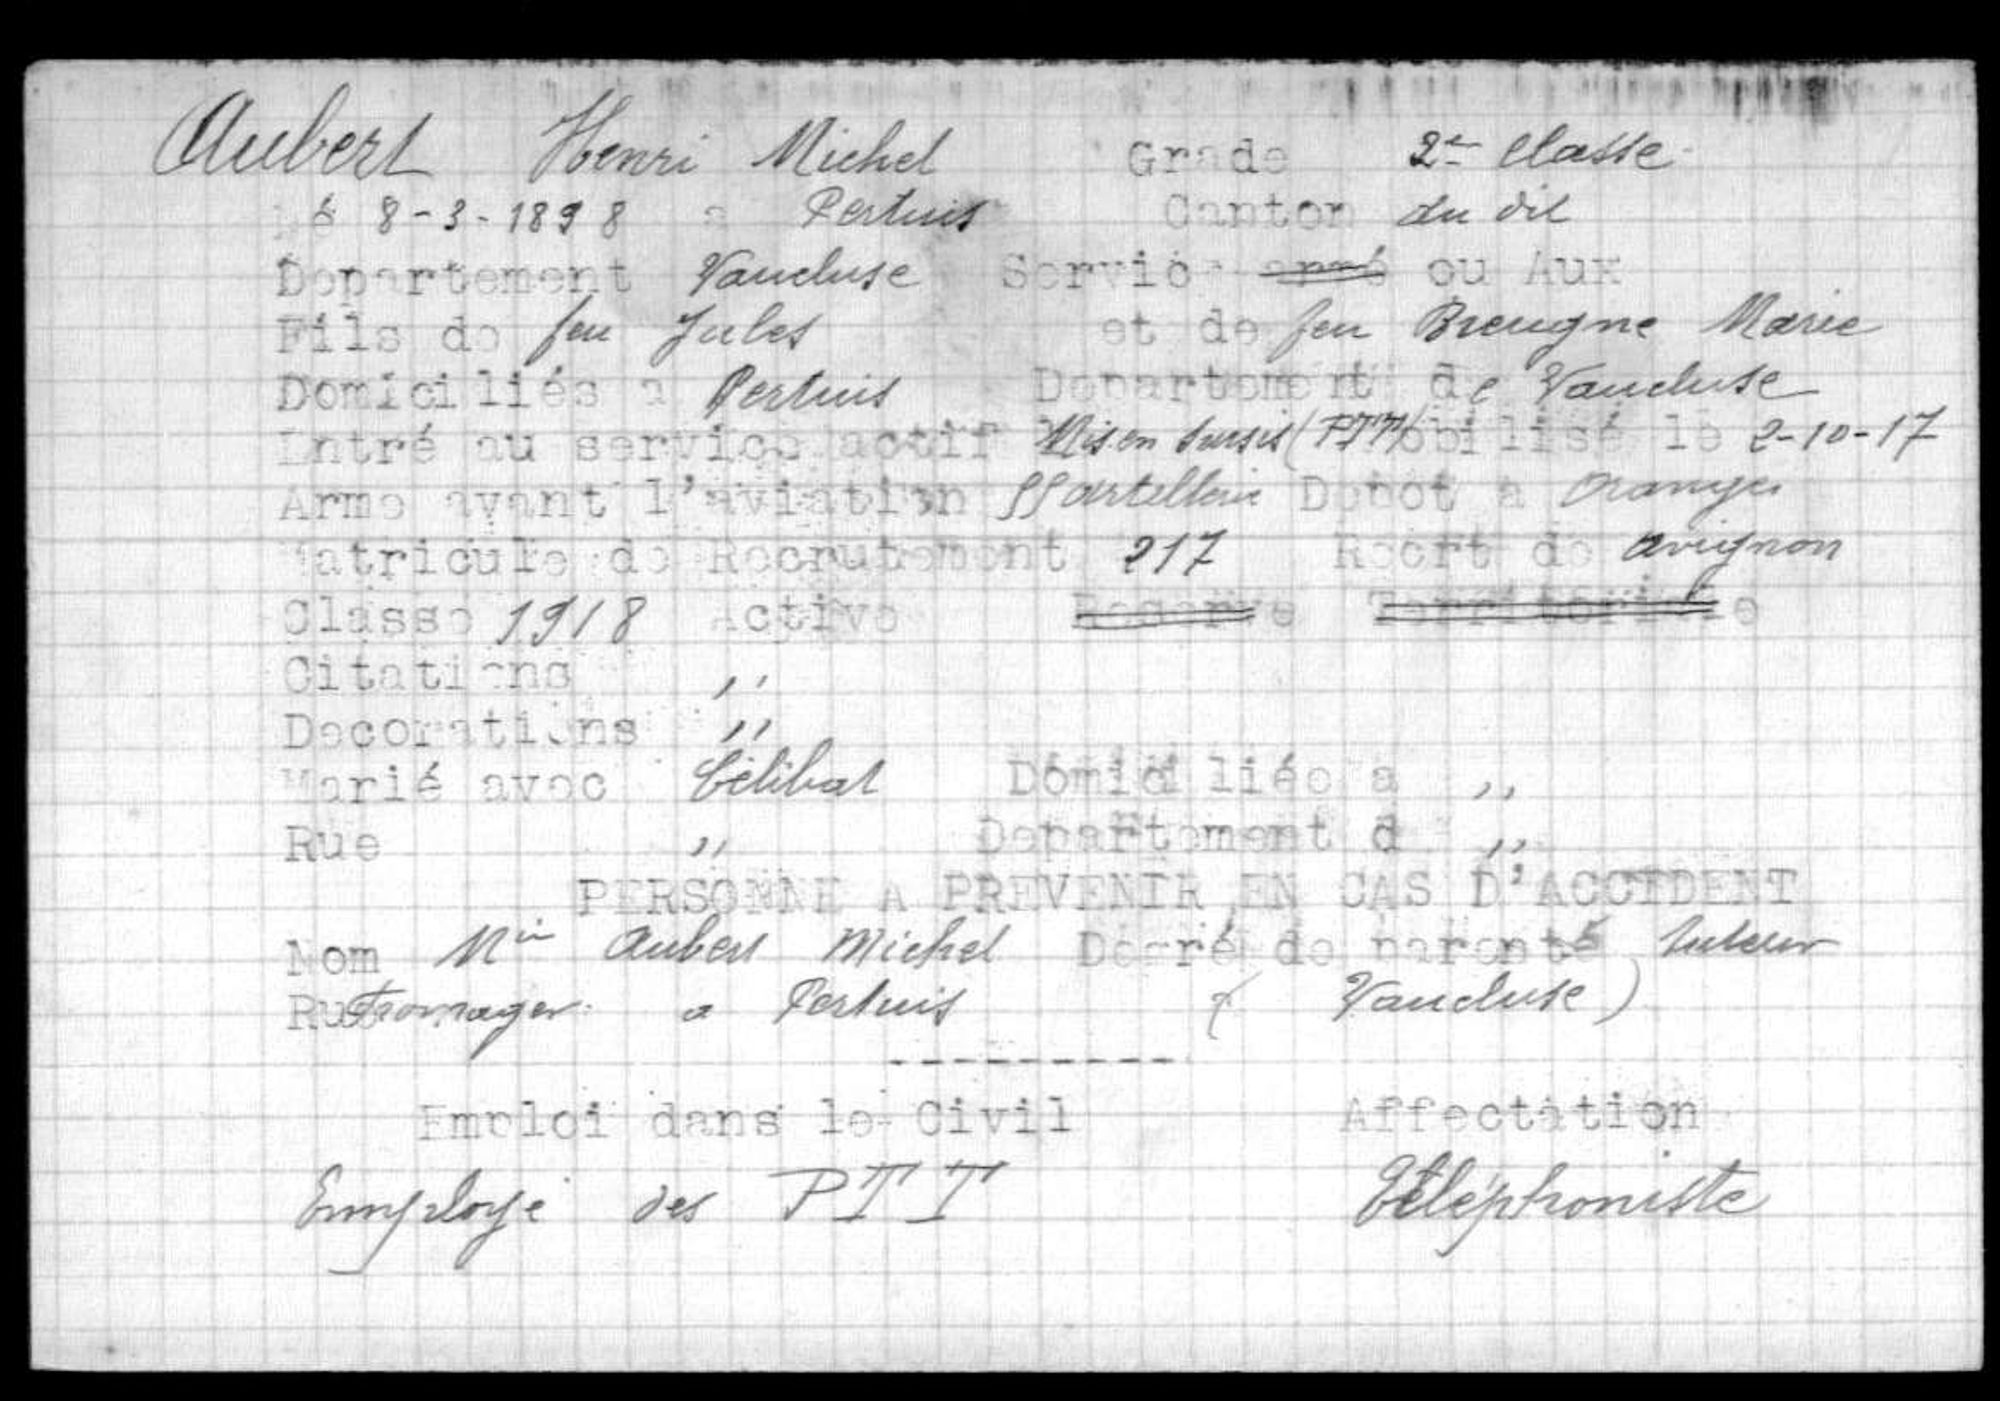 Aubert Henri Michel Grade 2e classe
é 8-3-1898 a Pertuis Canton du dit
Departement Vaucluse Service armé ou Aux
Fils de feu Jules et de feu Breugne Marie
Domiciliés a Pertuis Departement de Vaucluse
Entré au service actif Mis en sursis (PTT) obilisé le 2-10-17
Arme avant l'aviation artellerie Depot a Orange
Matricule de Recrutement 217 Rcort de Avignon
Classe 1918 Active Reserve Territoriale
Citations ,,
Decorations ,,
Marié avec Célibat Domiciliée a ,,
Rue ,, Departement d ,,
PERSONNE A PREVENIR EN CAS D'ACCIDENT
Nom Mr Aubert Michel Degré de parenté tuteur
Rue Fromager a Pertuis ( Vaucluse )
---------
Emploi dans le Civil Affectation
Employé des PTT Téléphoniste